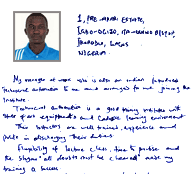 1, PRE-MARK ESTATE,
IGBO-OGIJO, ITA-
IKORODU, LAGOS
NIGERIA.
My manager at work who is also an institute fumudsed
Technical automation to me and arranged for me joining the
Institute.
Technical automation is a good training institute with
state of art equipments and Conducive learning environment
Their instructors are well trained, experience and
in discharging their duties.
Flexibility of lecture class, time to practise and
the slogan "all doubts must be cleared" make my
training a success.